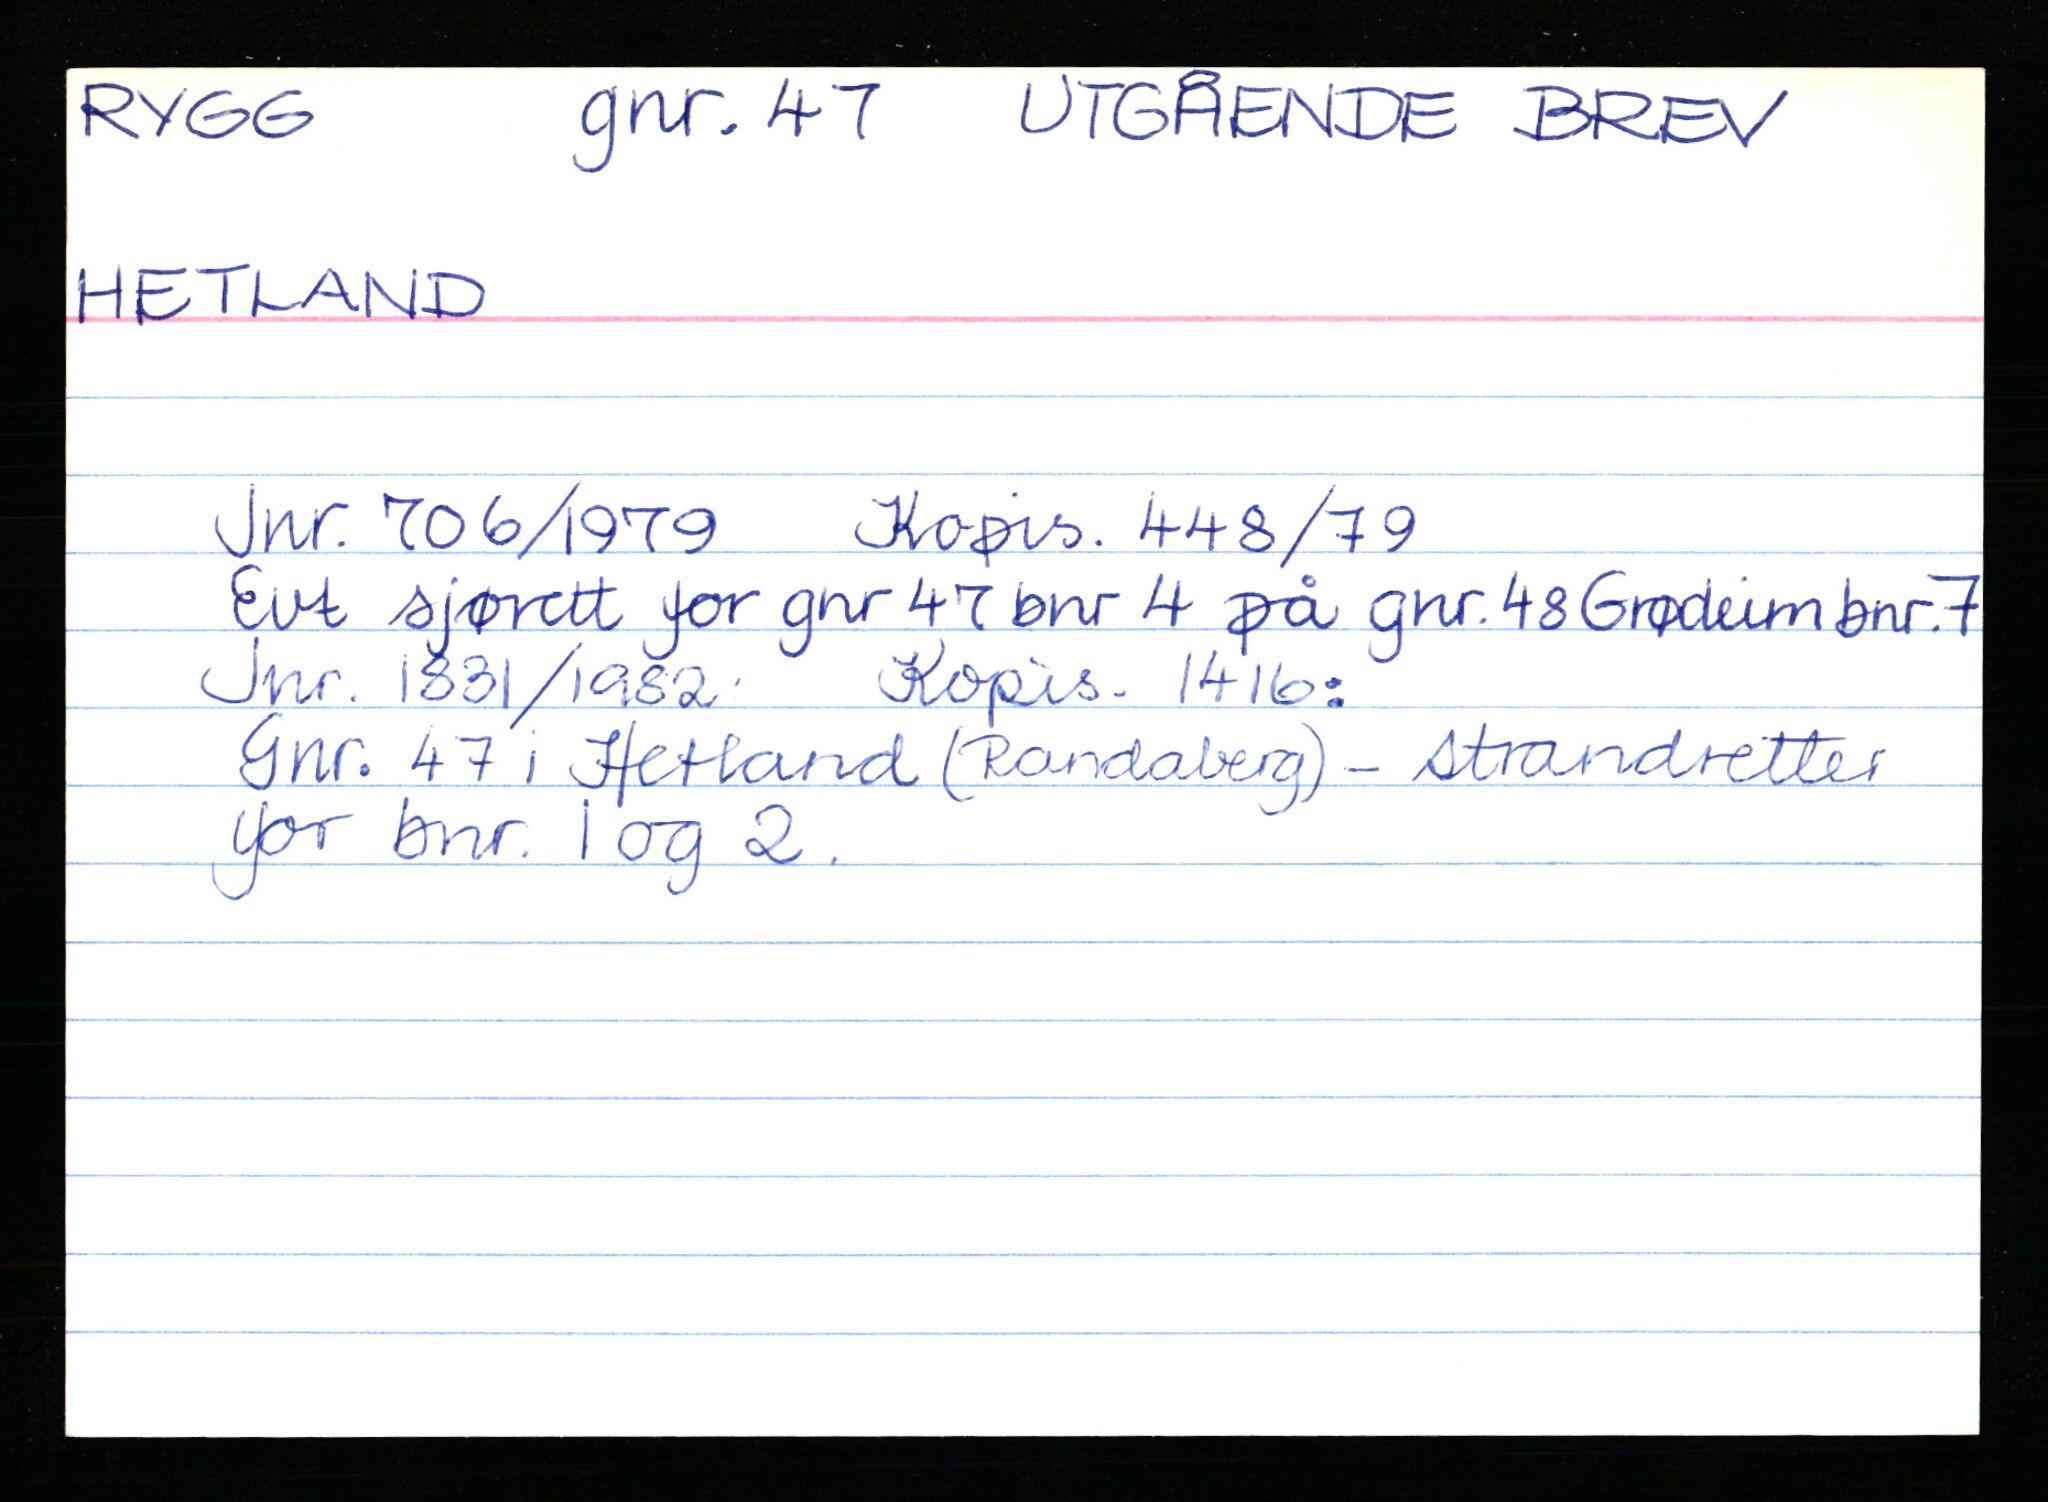 RYGG gnr. 47 UTGÅENDE BREV
HETLAND
Jnr. 706/1979 Kopis. 448/79
Evt sjørett for gnr 47 bnr 4 på gnr. 48 Grødeim bnr. 7
Jnr. 1831/1982. Kopis. 1416:
Gnr. 47 i Hetland (Randaberg) - strandretter
for bnr. 1 og 2.